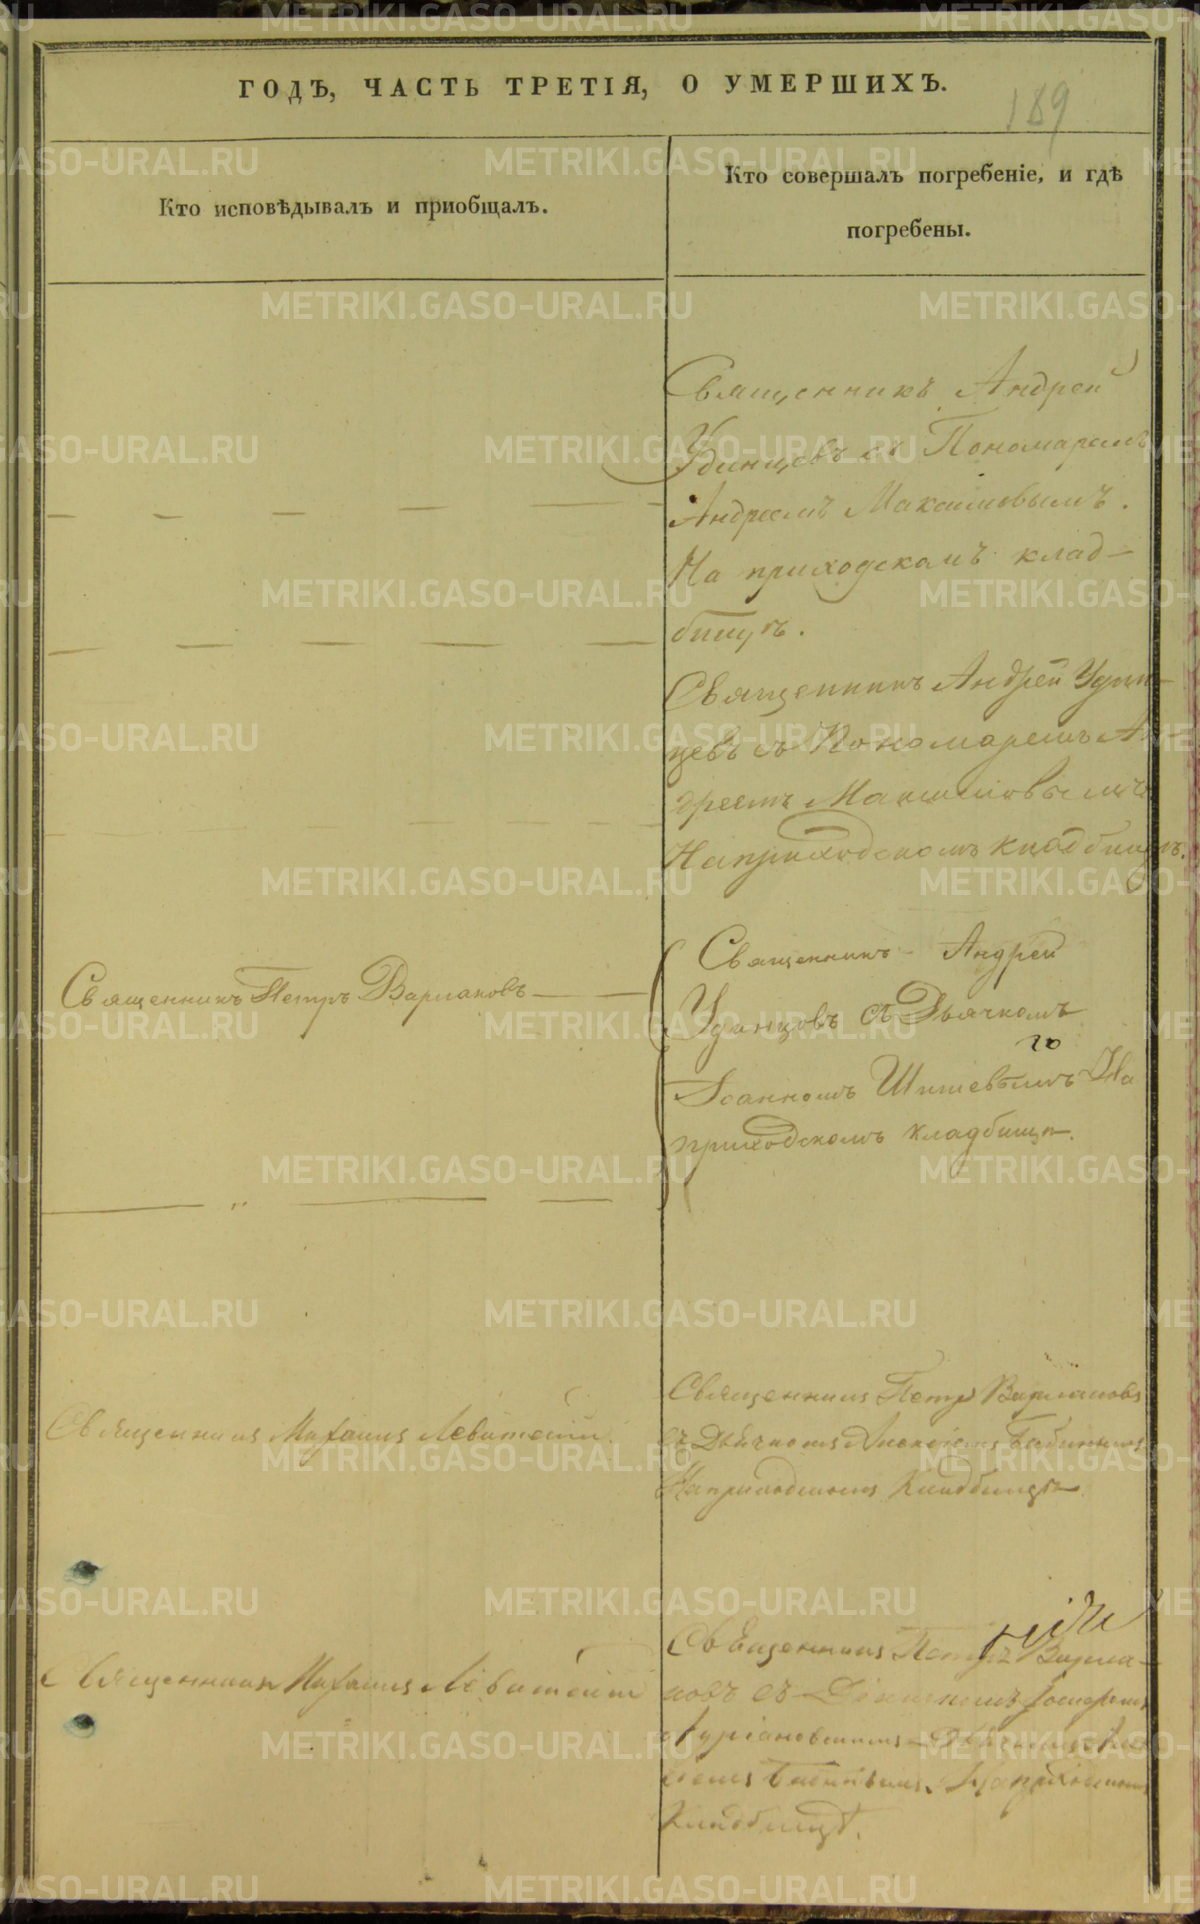 ГОДЪ, ЧАСТЬ ТРЕТІЯ, О УМЕРШИХЪ.
189
Кто исповѣдывалъ и пріобщалъ.
Кто совершалъ погребеніе, и гдѣ
погребены.
Священникъ Андрей
Удинцевъ съ Пономаремъ
Андреемъ Максимовымъ.
На приходскомъ клад-
бищѣ.
Священникъ Андрей Удин-
цевъ съ Пономаремъ Ан-
дреемъ Максимовымъ
На приходскомъ кладбищѣ.
Священникъ Петръ Варлаковъ
Священникъ Андрей
Удинцовъ съ Дьячкомъ
Іоанномъ На
приходскомъ кладбищѣ.
Священникъ Михаилъ Левитскій.
Священникъ Петръ Варлаковъ
съ Дьячкомъ Алексѣемъ Бабинымъ
На приходскомъ Кладбищѣ
Священникъ Михаилъ Левитскій
Священникъ Петръ Варла-
ковъ съ Діакономъ
Дьячкомъ
На приходскомъ
Кладбищѣ.
METRIKI.GASO-URAL.RU